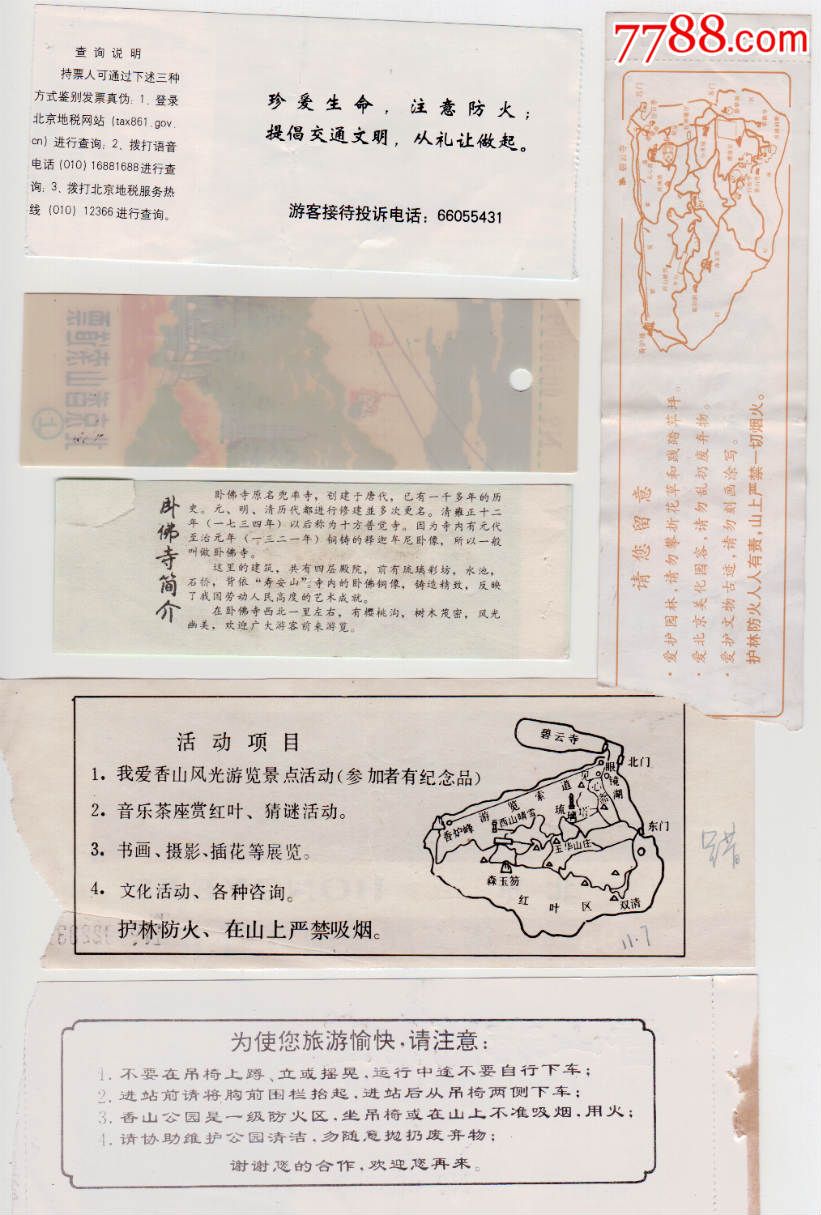 7788.com
查询说明
持票人可通过下述三种
方式鉴别发票真伪：1、登录
北京地税网站(tax861.gov.
cn)进行查询；2、拨打语音
电话(010)16881688进行查
询；3、拨打北京地税服务热
线 (010) 12366进行查询。
珍爱生命，注意防火；
提倡交通文明，从礼让做起。
游客接待投诉电话：66055431
请您留意
·爱护园林，请勿攀折花草和践踏草坪。
·爱北京美化园容，请勿乱扔废弃物。
·爱护文物古迹，请勿刻画涂写。
护林防火人人有责，山上严禁一切烟火。
卧佛寺简介
卧佛寺原名兜率寺，创建于唐代，已有一千多年的历
史。元、明、清历代都进行修建並多次更名。清雍正十二
年（一七三四年）以后称为十方普觉寺。因为寺内有元代
至治元年（一三二一年）铜铸的释迦牟尼卧像，所以一般
叫做卧佛寺。
这里的建筑，共有四层殿院，前有琉璃彩坊，水池，
石桥，背依“寿安山”；寺内的卧佛铜像，铸造精致，反映
了我国劳动人民高度的艺术成就。
在卧佛寺西北一里左右，有樱桃沟，树木茂密，风光
幽美，欢迎广大游客前来游览。
活动项目
1．我爱香山风光游览景点活动（参加者有纪念品）
2．音乐茶座赏红叶、猜谜活动。
3．书画、摄影、插花等展览。
4．文化活动、各种咨询。
护林防火、在山上严禁吸烟。
碧云寺
北门
眼镜湖
见心斋
游览索道
琉璃塔
西山晴雪
香炉峰
东门
玉华山庄
森玉笏
红叶区
双清
11.7
为使您旅游愉快·请注意：
1．不要在吊椅上蹲、立或摇晃，运行中途不要自行下车；
2．进站前请将胸前围栏抬起，进站后从吊椅两侧下车；
3．香山公园是一级防火区，坐吊椅或在山上不准吸烟，用火；
4．请协助维护公园清洁，勿随意抛扔废弃物；
谢谢您的合作，欢迎您再来。